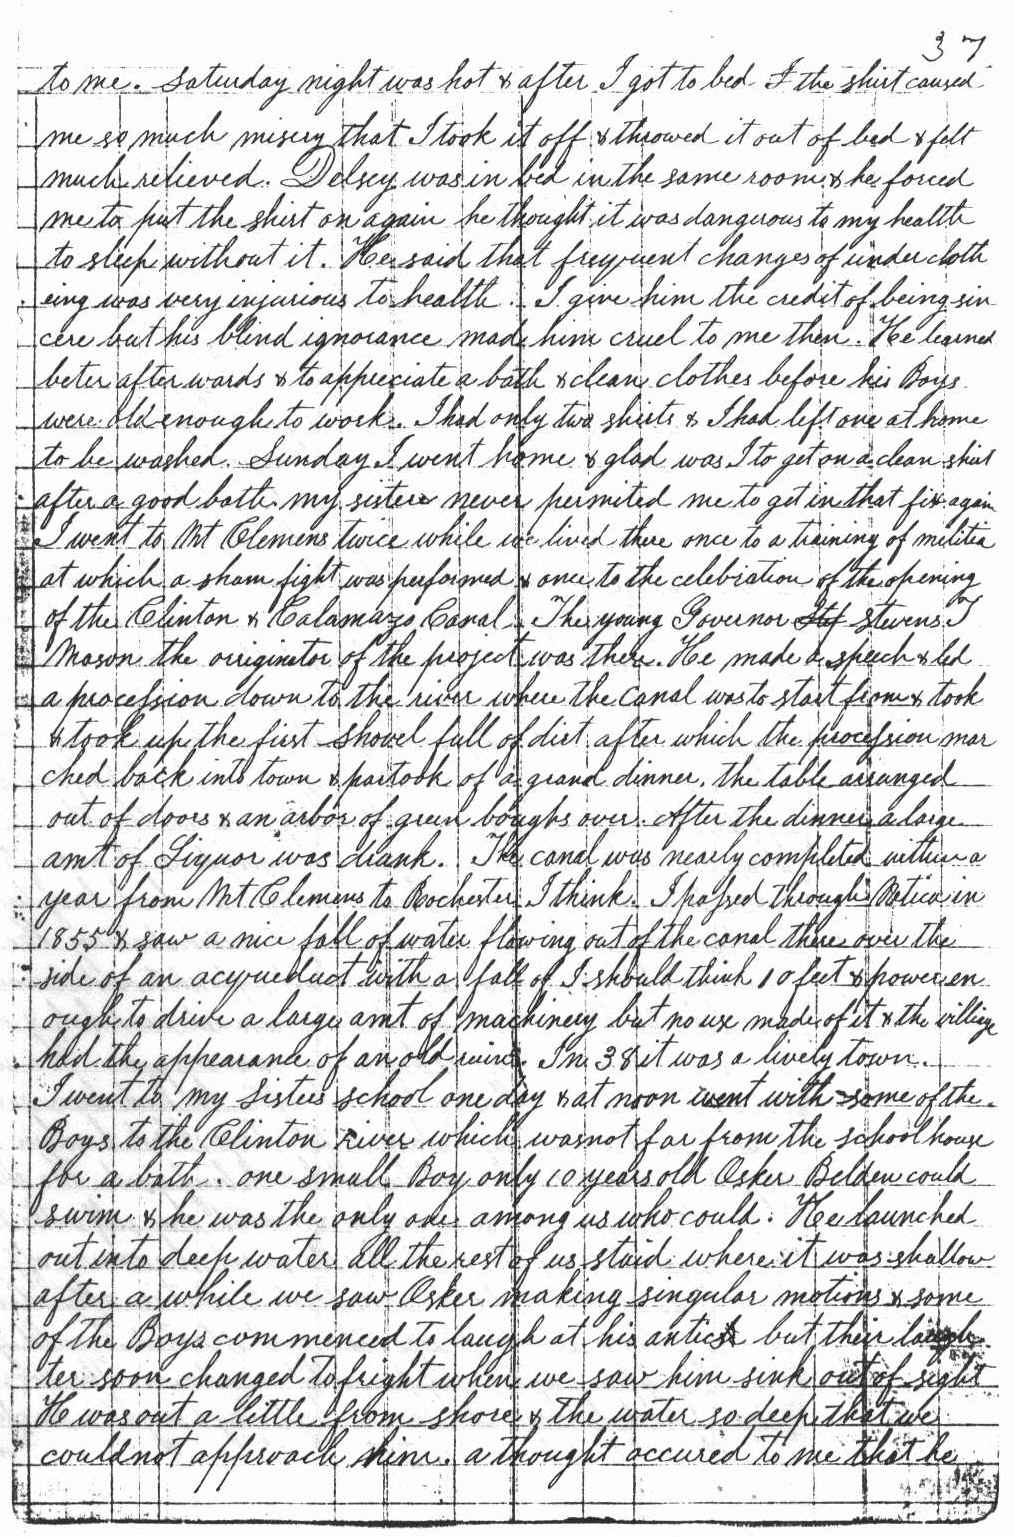 37
to me. Saturday night was hot & after I got to bed I the shirt caused
me so much misery that I took it off & throwed it out of bed & felt
much relieved. Delsey was in bed in the same room & he forced
me to put the shirt on again he thought it was dangerous to my health
to sleep without it. He said that frequent changes of under cloth
eing was very injurious to health. I give him the credit of being sin
cere but his blind ignorance made him cruel to me then. He learned
beter after wards & to appreciate a bath & clean clothes before his Boys
were old enough to work. I had only two shirts & I had left one at home
to be washed. Sunday I went home & glad was I to get on a clean shirt
after a good bath. my sisters never permited me to get in that fix again
I went to Mt Clemens twice while we lived there once to a training of militia
at which a sham fight was performed & once to the celebration of the opening
of the Clinton & Calamazo Canal. The young Governor Stef Stevens T
Mason the orriginator of the project was there. He made a speech & led
a procession down to the river where the Canal was to start from & took
& took up the first shovel full of dirt after which the procession mar
ched back into town & partook of a grand dinner. the table arranged
out of doors & an arbor of green boughs over. After the dinner a large
amt of Liquor was drank. The canal was nearly completed within a
year from Mt Clemens to Rochester I think. I passed through Utica in
1855 & saw a nice fall of water flowing out of the canal there over the
side of an acqueduct with a fall of I should think 10 feet & power en
ough to drive a large amt of machinery but no use made of it & the village
had the appearance of an old ruins. In 38 it was a lively town.
I went to my sisters school one day & at noon went with some of the
Boys to the Clinton River which was not far from the school house
for a bath. one small Boy only 10 years old Osker Belden could
swim & he was the only one among us who could. He launched
out into deep water all the rest of us staid where it was shallow
after a while we saw Osker making singular motions & some
of the Boys commenced to laugh at his antics but their laugh
ter soon changed to fright when we saw him sink out of sight
He was out a little from shore & the water so deep that we
could not approach him. a thought occured to me that he